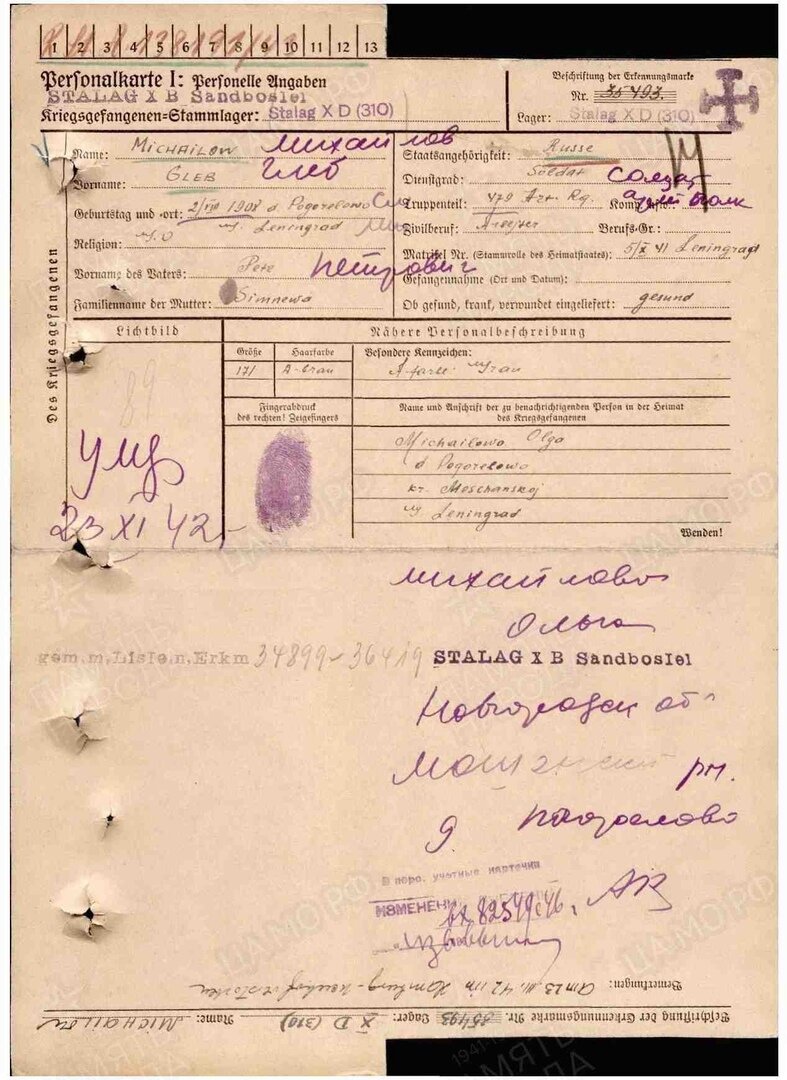 1 2 3 4 5 6 7 8 9 10 11 12 13
Personalkarte I: Personelle Angaben
STALAG X B Sandbostel
Kriegsgefangenen-Stammlager: Stalag X D (310)
Beschriftung der Erkennungsmarke
Nr. 35493.
Lager: Stalag X D (310)
Des Kriegsgefangenen
Name: MICHAILOW Михайлов
Vorname: GLEB Глеб
Geburtstag und -ort: 2/VIII 1908 d Pogorelowo
Leningrad
Religion:
Vorname des Vaters: Pete Петрович
Familienname der Mutter: Simnewa
Staatsangehörigkeit: Russe
Dienstgrad: Soldat Солдат
Truppenteil: 479 Art. Rg. Komp. арт полк
Zivilberuf: Arbeiter Berufs-Gr.:
Matrikel Nr. (Stammrolle des Heimatstaates): 5/X 41 Leningrad
Gefangennahme (Ort und Datum):
Ob gesund, krank, verwundet eingeliefert: gesund
Lichtbild
89
Умер
23 XI 42
Nähere Personalbeschreibung
Größe Haarfarbe Besondere Kennzeichen:
171
Fingerabdruck
des rechten! Zeigefingers
Name und Anschrift der zu benachrichtigenden Person in der Heimat
des Kriegsgefangenen
Michailowa Olga
d Pogorelowo
kr Moschanskoj
Leningrad
Wenden!
Михайлова
Ольга
gem.m.Liste.n.Erkm 34899-36419 STALAG X B Sandbostel
Новгородск об
Мошенский рн.
д. Погорелово
В перс. учетные карточки
ИЗМЕНЕНИ
вх 82549с46,
Bemerkungen: Am 23. XI. 42 im Hamburg- verstorben
Beschriftung der Erkennungsmarke Nr. 35493 Lager: X D (310) Name: MICHAILOW
ЦАМО РФ